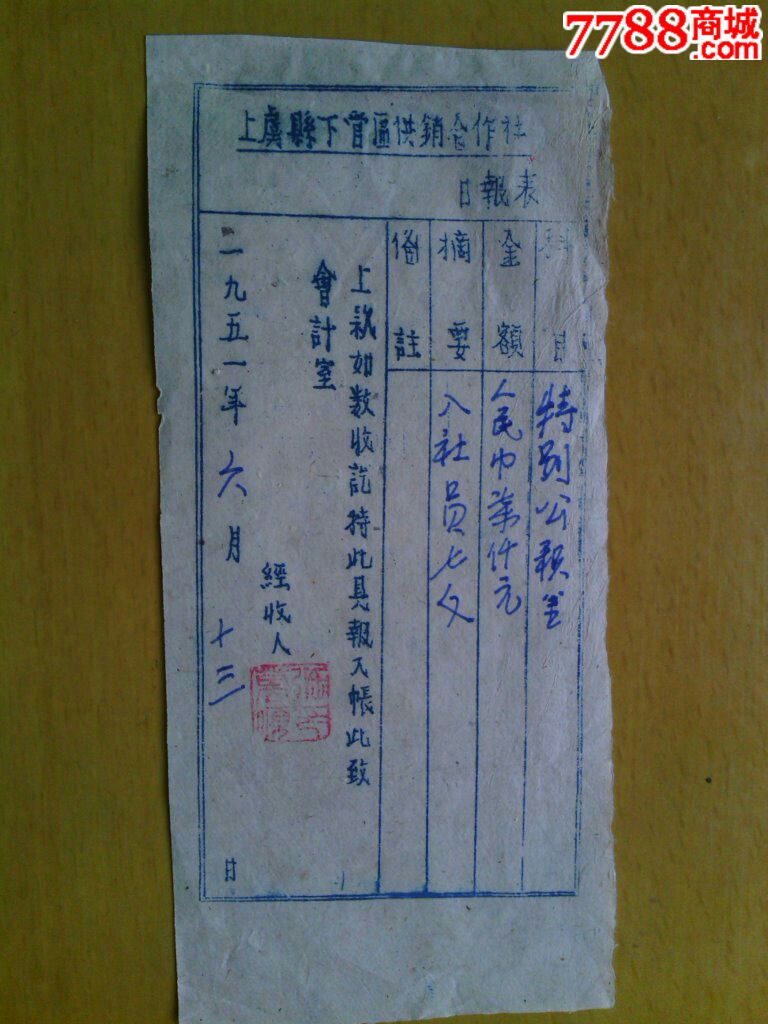 7788商城
.com
上虞縣下管區供銷合作社
日報表
科目 特別公積金
金額 人民币柒仟元
摘要 入社員七文
俻註
上欵如数收訖持此具報入帳此致
會計室
經收人
一九五一年六月十三日